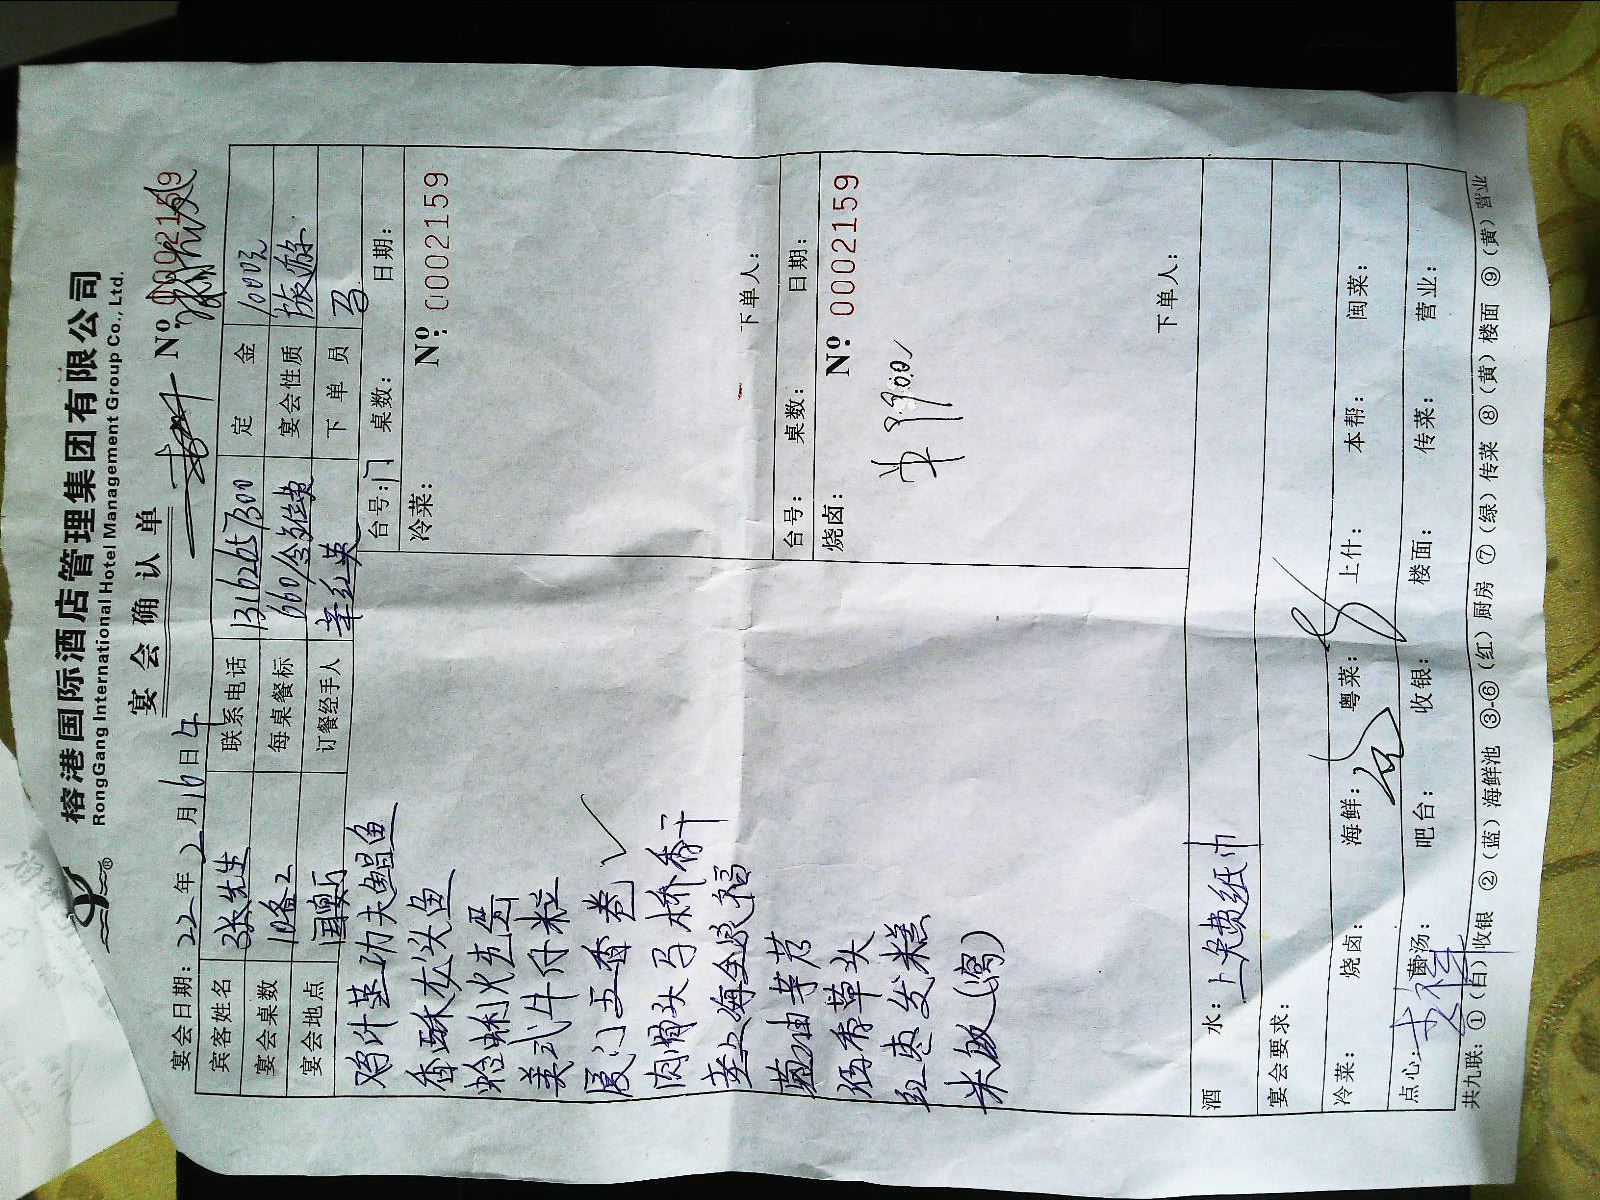 榕港国际酒店管理集团有限公司
RongGang International Hotel Management Group Co., Ltd.
宴会确认单 Nº 0002159
宴会日期：22年2月16日午
宾客姓名 张先生 联系电话 13162657300 定金 1000元
宴会桌数 10备2 每桌餐标 宴会性质 旅游
宴会地点 国宴厅 订餐经手人 辛红英 下单员 马
台号： 桌数： 日期：
冷菜： Nº: 0002159
鸡什菌功夫鲳鱼
香酥龙头鱼
蛤蜊火古蛋
美式牛仔粒
厦门五香卷
肉骨头马桥香干
上海全家福
葱油芋艿
红枣发糕
米饭(窝)
下单人：
台号： 桌数： 日期：
烧卤： Nº: 0002159
下单人：
酒水：上免费纸巾
宴会要求：
冷菜： 烧卤： 海鲜： 粤菜： 上什： 本帮： 闽菜：
点心： 羹汤： 吧台： 收银： 楼面： 传菜： 营业：
共九联：①（白）收银 ②（蓝）海鲜池 ③-⑥（红）厨房 ⑦（绿）传菜 ⑧（黄）楼面 ⑨（黄）营业